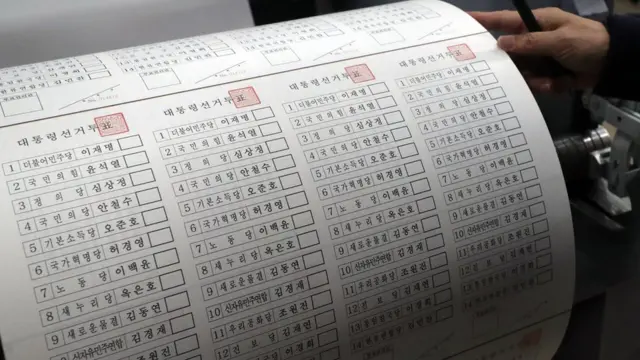 대통령선거투표
1 더불어민주당 이재명
2 국민의힘 윤석열
3 정의당 심상정
4 국민의당 안철수
5 기본소득당 오준호
6 국가혁명당 허경영
7 노동당 이백윤
8 새누리당 옥은호
9 새로운물결 김동연
신자유민주연합 김경재
조원진
대통령선거투표
1 더불어민주당 이재명
2 국민의힘 윤석열
3 정의당 심상정
4 국민의당 안철수
5 기본소득당 오준호
6 국가혁명당 허경영
7 노동당 이백윤
8 새누리당 옥은호
9 새로운물결 김동연
10 신자유민주연합 김경재
11 우리공화당 조원진
12 진보당 김재연
이경희
대통령선거투표
1 더불어민주당 이재명
2 국민의힘 윤석열
3 정의당 심상정
4 국민의당 안철수
5 기본소득당 오준호
6 국가혁명당 허경영
7 노동당 이백윤
8 새누리당 옥은호
9 새로운물결 김동연
10 신자유민주연합 김경재
11 우리공화당 조원진
12 진보당 김재연
13 통일한국당 이경희
14 한류연합당 김민찬
대통령선거투표
1 더불어민주당 이재명
2 국민의힘 윤석열
3 정의당 심상정
4 국민의당 안철수
5 기본소득당 오준호
6 국가혁명당 허경영
7 노동당 이백윤
8 새누리당 옥은호
9 새로운물결 김동연
10 신자유민주연합 김경재
11 우리공화당 조원진
12 진보당 김재연
13 통일한국당 이경희
14 한류연합당 김민찬